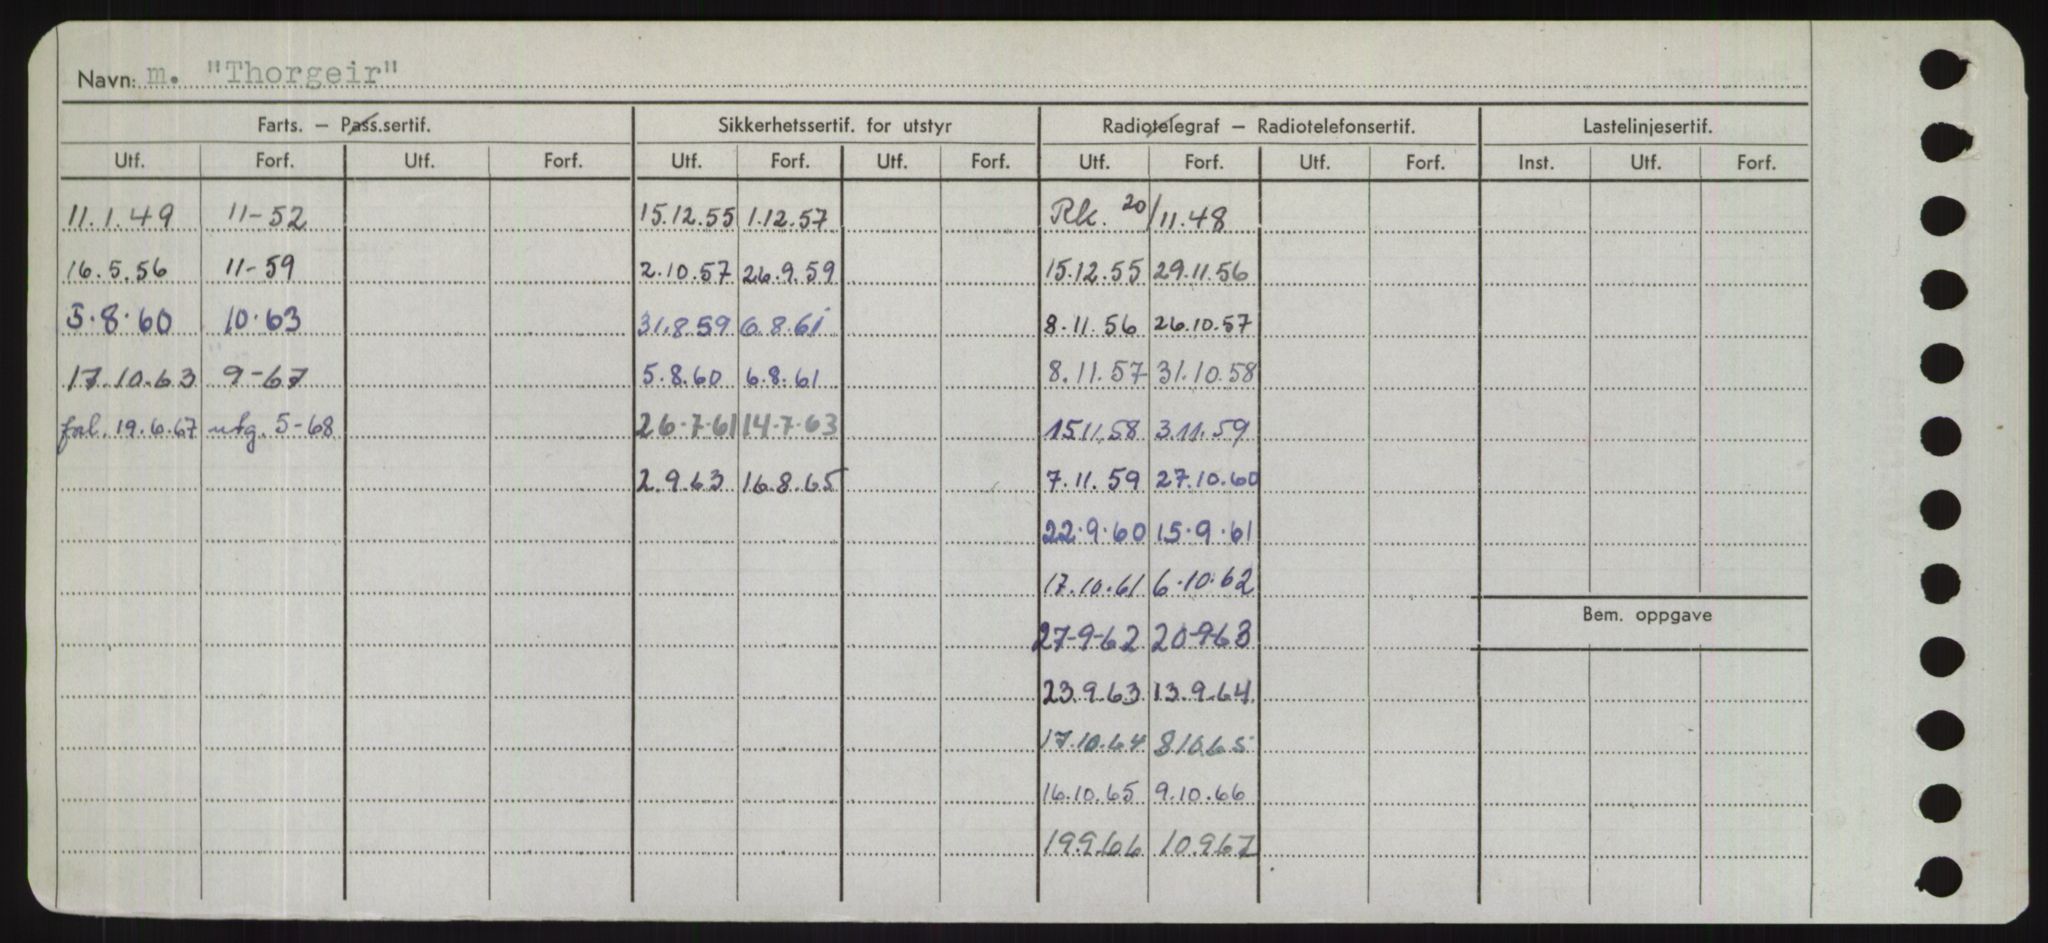 Navn: m. "Thorgeir"
Farts. — Pass.sertif. Sikkerhetssertif. for utstyr Radiotelegraf — Radiotelefonsertif. Lastelinjesertif.
Utf. Forf. Utf. Forf. Utf. Forf. Utf. Forf. Utf. Forf. Utf. Forf. Inst. Utf. Forf.
11.1.49 11-52 15.12.55 1.12.57 Rk. 20/11.48
16.5.56 11-59 2.10.57 26.9.59 15.12.55 29.11.56
5.8.60 10.63 31.8.59 6.8.61 8.11.56 26.10.57
17.10.63 9-67 5.8.60 6.8.61 8.11.57 31.10.58
forl. 19.6.67 utg. 5-68 26.7.61 14.7.63 15.11.58 3.11.59
2.9.63 16.8.65 7.11.59 27.10.60
22.9.60 15.9.61
17.10.61 6.10.62
27-9-62 20-9-63
23.9.63 13.9.64
Bem. oppgave
17.10.64 8.10.65
16.10.65 9.10.66
19.9.66 10.9.67